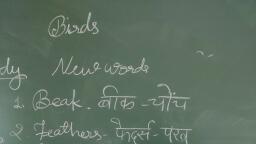 Birds
dy New words
1. Beak - बीक - चोंच
2. Feathers - फैदर्स - पंख